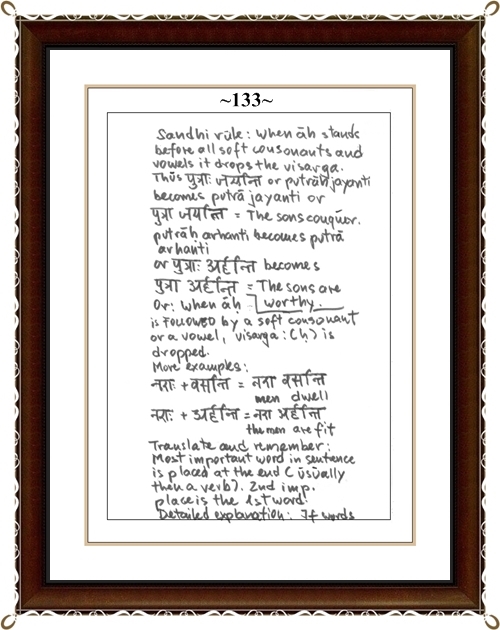 ~133~
Sandhi rule: When āh stands
before all soft consonants and
vowels it drops the visarga.
Thus पुत्राः जयन्ति or putrāḥ jayanti
becomes putrā jayanti or
पुत्रा जयन्ति = The sons conquer.
putrāh arhanti becomes putrā
arhanti
or पुत्राः अर्हन्ति becomes
पुत्रा अर्हन्ति = The sons are
Or: When āḥ worthy.
is FOLLOWED by a soft consonant
or a vowel, visarga : (ḥ) is
dropped.
More examples:
नराः + वसन्ति = नरा वसन्ति
men dwell
नराः + अर्हन्ति = नरा अर्हन्ति
the men are fit
Translate and remember:
Most important word in sentence
is placed at the end (usually
then a verb). 2nd imp.
place is the 1st word.
Detailed explanation: If words